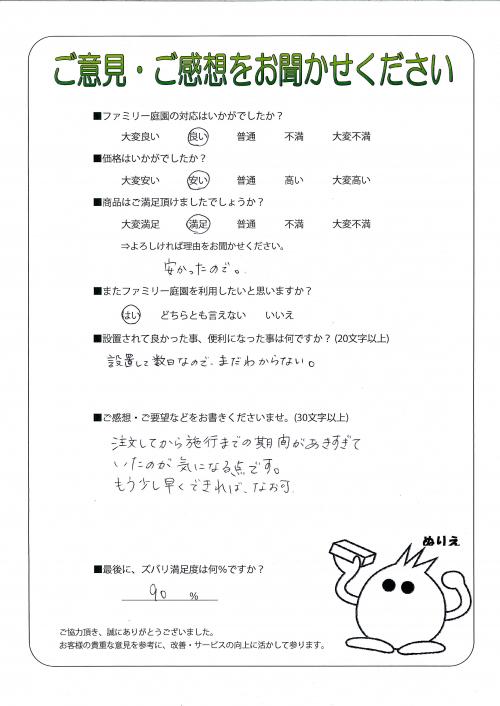 ご意見・ご感想をお聞かせください
■ファミリー庭園の対応はいかがでしたか？
大変良い 良い 普通 不満 大変不満
■価格はいかがでしたか？
大変安い 安い 普通 高い 大変高い
■商品はご満足頂けましたでしょうか？
大変満足 満足 普通 不満 大変不満
⇒よろしければ理由をお聞かせください。
安かったので。
■またファミリー庭園を利用したいと思いますか？
はい どちらとも言えない いいえ
■設置されて良かった事、便利になった事は何ですか？(20文字以上)
設置して数日なので、まだわからない。
■ご感想・ご要望などをお書きくださいませ。(30文字以上)
注文してから施行までの期間があきすぎて
いたのが気になる点です。
もう少し早くできれば、なお可
ぬりえ
■最後に、ズバリ満足度は何%ですか？
90 %
ご協力頂き、誠にありがとうございました。
お客様の貴重な意見を参考に、改善・サービスの向上に活かして参ります。